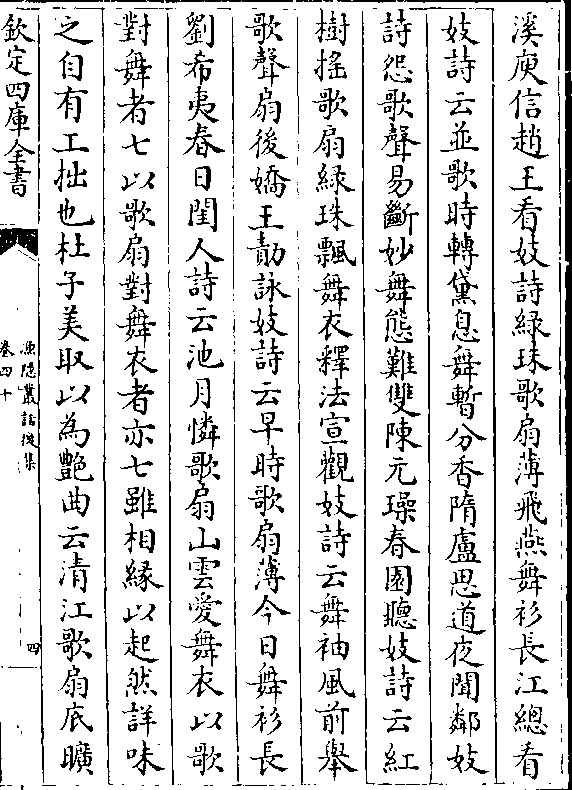 溪庾信趙王看妓詩緑珠歌扇薄飛燕舞衫長江總看
妓詩云並歌時轉黛息舞暫分香隋盧思道夜聞鄰妓
詩怨歌聲易斷妙舞態難雙陳元璪春園聽妓詩云紅
樹摇歌扇緑珠飄舞衣釋法宣觀妓詩云舞袖風前舉
歌聲扇後嬌王勣詠妓詩云早時歌扇薄今日舞衫長
劉希夷春日閨人詩云池月憐歌扇山雲愛舞衣以歌
對舞者七以歌扇對舞衣者亦七雖相縁以起然詳味
之自有工拙也杜子美取以為艷曲云清江歌扇底曠
欽定四庫全書
漁隱叢話後集
卷四十
四